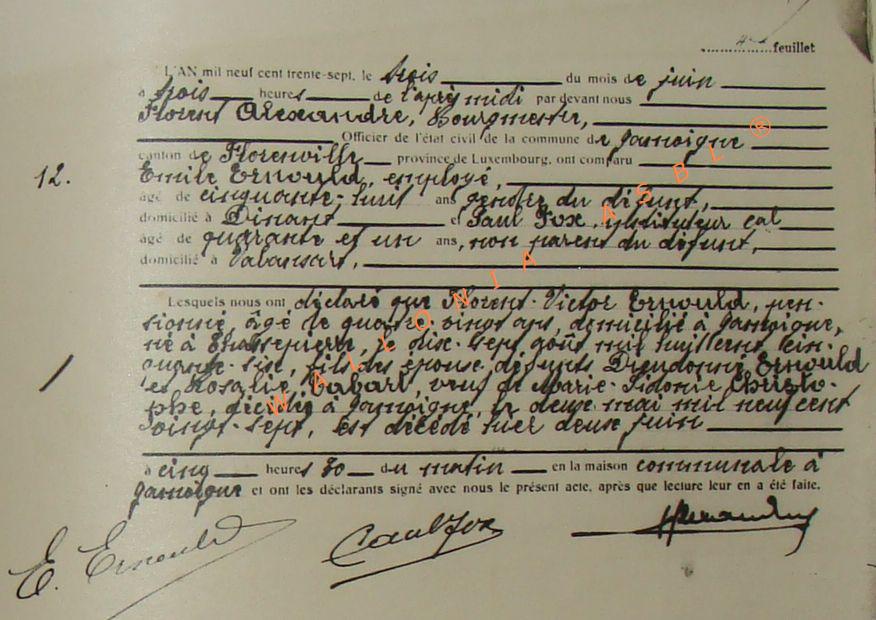 feuillet
L'AN mil neuf cent trente-sept, le trois du mois de juin
à trois heures de l'après midi par devant nous
Florent Alexandre, Bourgmestre,
Officier de l'état civil de la commune de Jamoigne
canton de Florenville province de Luxembourg, ont comparu
12.
Emile Ernould, employé,
âgé de cinquante-huit ans, gendre du défunt,
domicilié à Dinant et Paul Fox, instituteur
âgé de quarante et un ans, non parent du défunt,
domicilié à
Lesquels nous ont déclaré que Florent-Victor Ernould, pen-
sionné, âgé de quatre vingt ans, domicilié à Jamoigne,
né à Chassepierre, le dix-sept août mil huit cent cin-
quante-six, fils des époux défunts Dieudonné Ernould
et Rosalie Tabart, veuf de Marie-Sidonie Christo-
phe, décédée à Jamoigne, le deux mai mil neuf cent
vingt-sept, est décédé hier deux juin
à cinq heures 30 du matin en la maison communale à
Jamoigne et ont les déclarants signé avec nous le présent acte, après que lecture leur en a été faite.
E. Ernould Paul Fox
WALLONIA ASBL ®